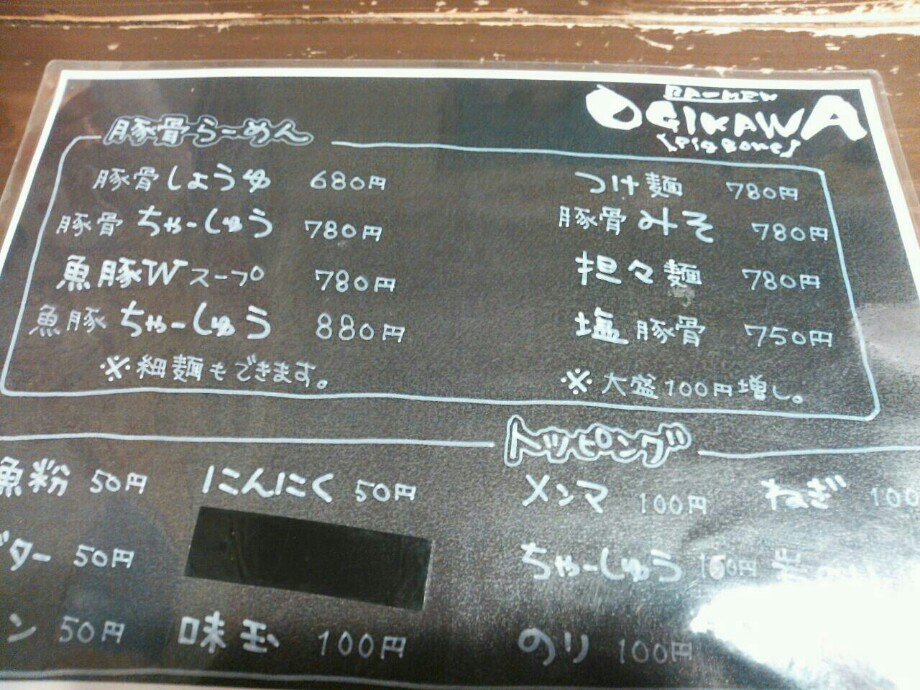 RA-MEN
OGIKAWA
[Pig Bone]
豚骨らーめん
豚骨しょうゆ 680円
豚骨ちゃーしゅう 780円
魚豚Wスープ 780円
魚豚ちゃーしゅう 880円
※細麺もできます。
つけ麺 780円
豚骨みそ 780円
担々麺 780円
塩豚骨 750円
※大盛100円増し。
トッピング
魚粉 50円 にんにく 50円
ター 50円
ン 50円 味玉 100円
メンマ 100円 ねぎ 100
ちゃーしゅう
のり 100円